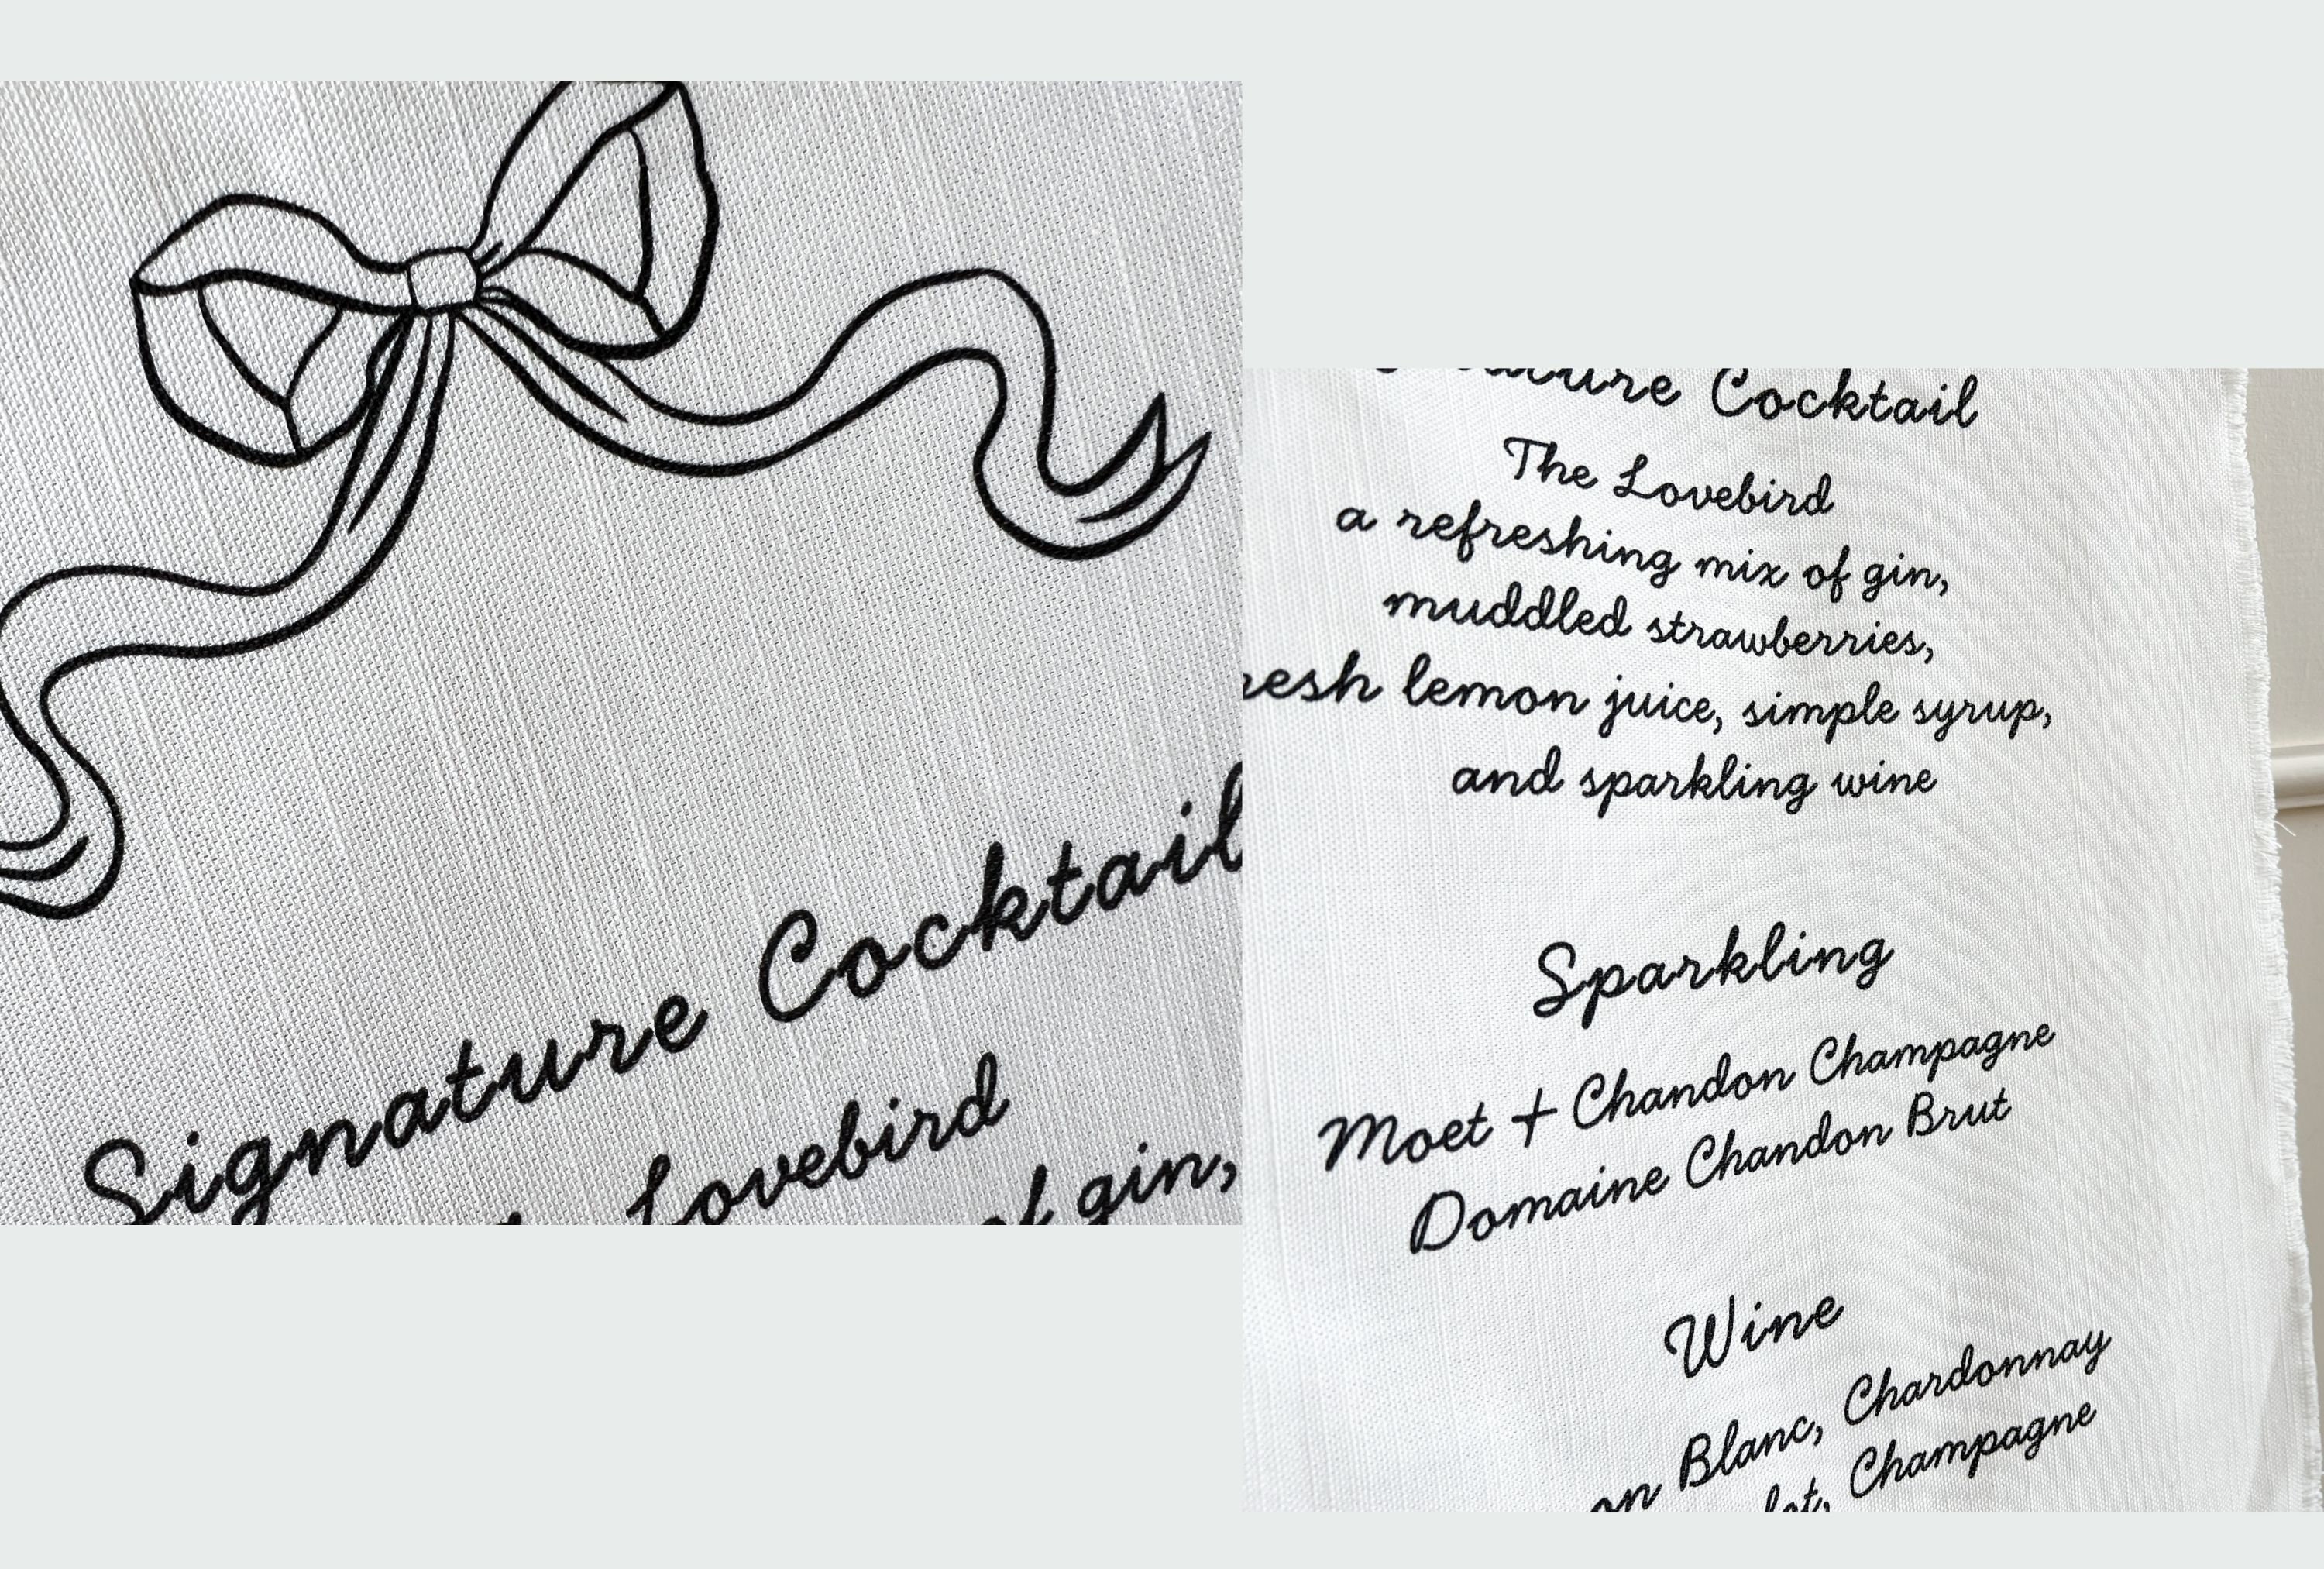 Signature Cocktail
Lovebird
of gin,
Cocktail
The Lovebird
a refreshing mix of gin,
muddled strawberries,
lemon juice, simple syrup,
and sparkling wine
Sparkling
Moet + Chandon Champagne
Domaine Chandon Brut
Wine
Blanc, Chardonnay
Champagne